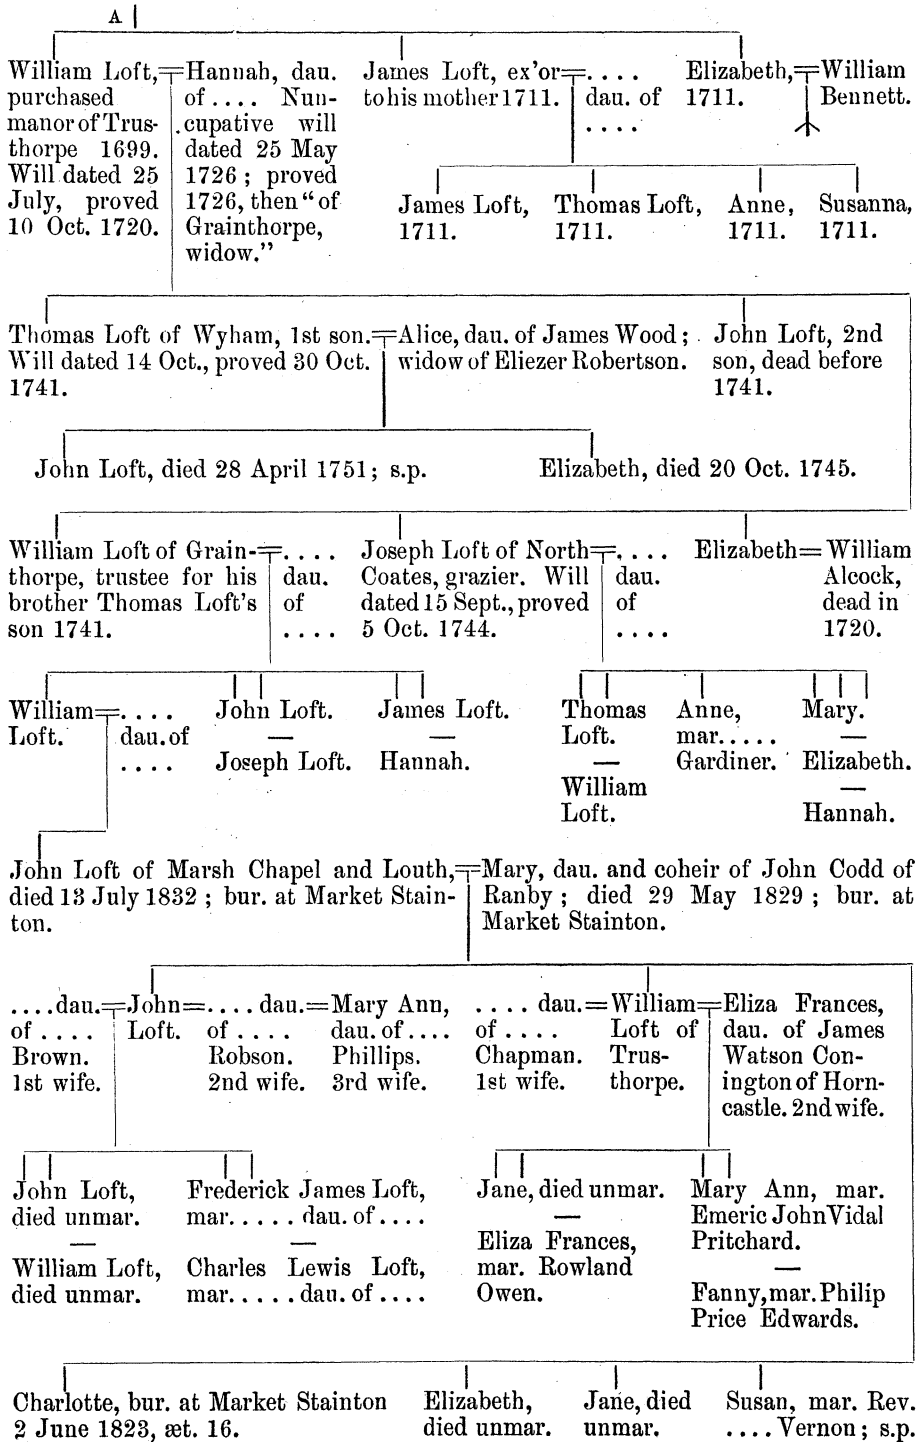 A
William Loft,
purchased
manor of Trus-
thorpe 1699.
Will dated 25
July, proved
10 Oct. 1720.
Hannah, dau.
of .... Nun-
cupative will
dated 25 May
1726 ; proved
1726, then "of
Grainthorpe,
widow."
James Loft, ex'or
to his mother 1711.
....
dau. of
....
Elizabeth,
1711.
William
Bennett.
James Loft,
1711.
Thomas Loft,
1711.
Anne,
1711.
Susanna,
1711.
Thomas Loft of Wyham, 1st son.
Will dated 14 Oct., proved 30 Oct.
1741.
Alice, dau. of James Wood ;
widow of Eliezer Robertson.
John Loft, 2nd
son, dead before
1741.
John Loft, died 28 April 1751; s.p.
Elizabeth, died 20 Oct. 1745.
William Loft of Grain-
thorpe, trustee for his
brother Thomas Loft's
son 1741.
....
dau.
of
....
Joseph Loft of North
Coates, grazier. Will
dated 15 Sept., proved
5 Oct. 1744.
....
dau.
of
....
Elizabeth=William
Alcock,
dead in
1720.
William
Loft.
....
dau. of
....
John Loft.
—
Joseph Loft.
James Loft.
—
Hannah.
Thomas
Loft.
—
William
Loft.
Anne,
mar.....
Gardiner.
Mary.
—
Elizabeth.
—
Hannah.
John Loft of Marsh Chapel and Louth,
died 13 July 1832 ; bur. at Market Stain-
ton.
Mary, dau. and coheir of John Codd of
Ranby ; died 29 May 1829 ; bur. at
Market Stainton.
....dau.
of ....
Brown.
1st wife.
John=
Loft.
.... dau.=
of ....
Robson.
2nd wife.
Mary Ann,
dau. of ....
Phillips.
3rd wife.
.... dau.=
of ....
Chapman.
1st wife.
William
Loft of
Trus-
thorpe.
Eliza Frances,
dau. of James
Watson Con-
ington of Horn-
castle. 2nd wife.
John Loft,
died unmar.
—
William Loft,
died unmar.
Frederick James Loft,
mar..... dau. of ....
—
Charles Lewis Loft,
mar..... dau. of ....
Jane, died unmar.
—
Eliza Frances,
mar. Rowland
Owen.
Mary Ann, mar.
Emeric John Vidal
Pritchard.
—
Fanny, mar. Philip
Price Edwards.
Charlotte, bur. at Market Stainton
2 June 1823, æt. 16.
Elizabeth,
died unmar.
Jane, died
unmar.
Susan, mar. Rev.
.... Vernon ; s.p.